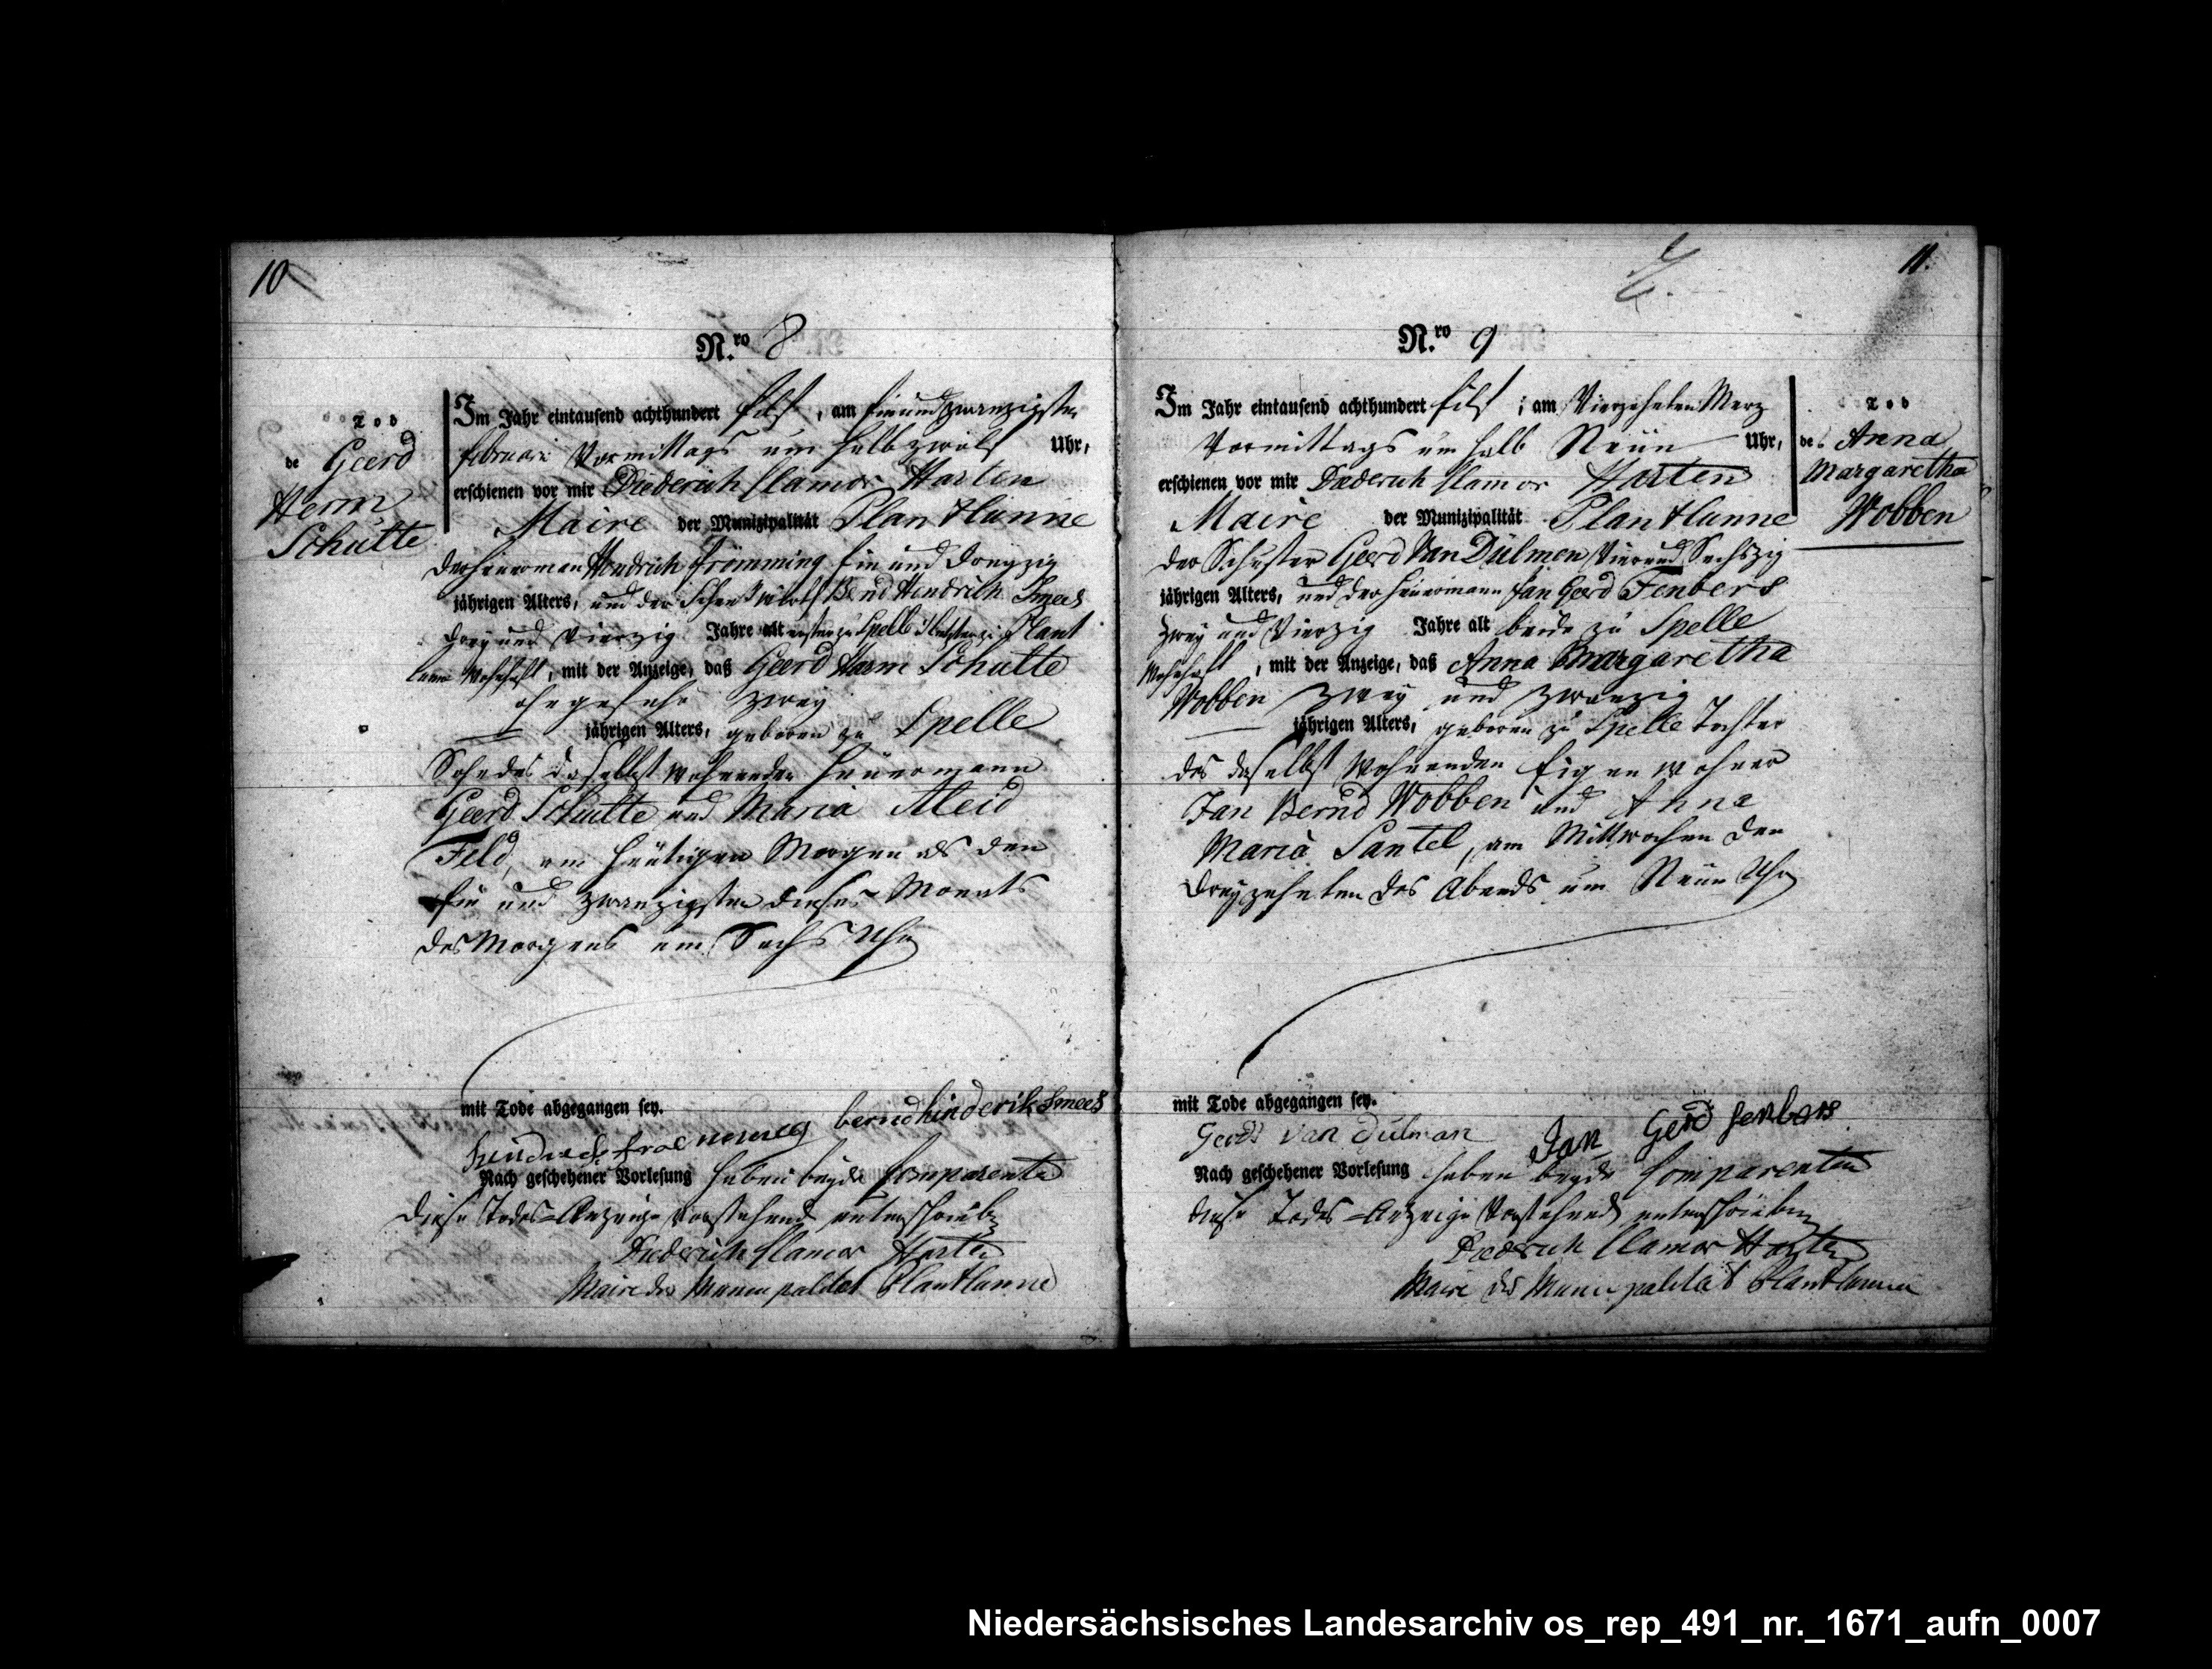 10
N.ro 8
Tod
de Geerd
Herm
Schutte
Im Jahr eintausend achthundert Eilf, am Einundzwanzigsten
Februari Vormittags um halb zwölf Uhr,
erschienen vor mir Diederich Clamor Harten
Maire der Munizipalität Plantlünne
der Heuerman Hendrich Frömming Ein und dreyzig
jährigen Alters, und der Schenkwirth Bernd Hendrich Smees
Drey und Vierzig Jahre alt ersterer zu Spelle letzterer zu Plant
lünne Wohnhaft, mit der Anzeige, daß Geerd Harm Schutte
ohngefehr zwey
jährigen Alters, geboren zu Spelle
Sohn des daselbst wohnenden Heuermann
Geerd Schutte und Maria Aleid
Feld, am heutigen Morgen als den
Ein und zwanzigsten dieses Monats
des Morgens um Sechs Uhr
mit Tode abgegangen sey.
berndhinderik Smees
Nach geschehener Vorlesung haben beyde Comparenten
diese Todes=Anzeige vorstehend unterschrieben
Diederich Clamor Harten
Maire der Municipalitat Plantlünne
11.
N.ro 9
Tod
de Anna
Margaretha
Wobben
Im Jahr eintausend achthundert Eilf; am Vierzehnten Merz
Vormittags um halb Neün Uhr,
erschienen vor mir Diederich Clamor Harten
Maire der Munizipalität Plantlünne
der Schuster Geerd Van Dülmen Vier und Sechszig
jährigen Alters, und der Heuermann Jan Gerd Fenbers
zwey und Vierzig Jahre alt beide zu Spelle
Wohnhaft, mit der Anzeige, daß Anna Margaretha
Wobben zwey und zwanzig
jährigen Alters, geboren zu Spelle Tochter
des daselbst wohnenden Eigenwohner
Jan Bernd Wobben und Anna
Maria Santel, am Mittwochen den
dreyzehnten des Abends um Neün Uhr
mit Tode abgegangen sey.
Gerdt van dülman Jan Gerd fenbers
Nach geschehener Vorlesung haben beyde Comparenten
diese Todes=Anzeige vorstehend unterschrieben
Diederich Clamor Harten
Maire der Municipalitat Plantlünne
Niedersächsisches Landesarchiv os_rep_491_nr._1671_aufn_0007